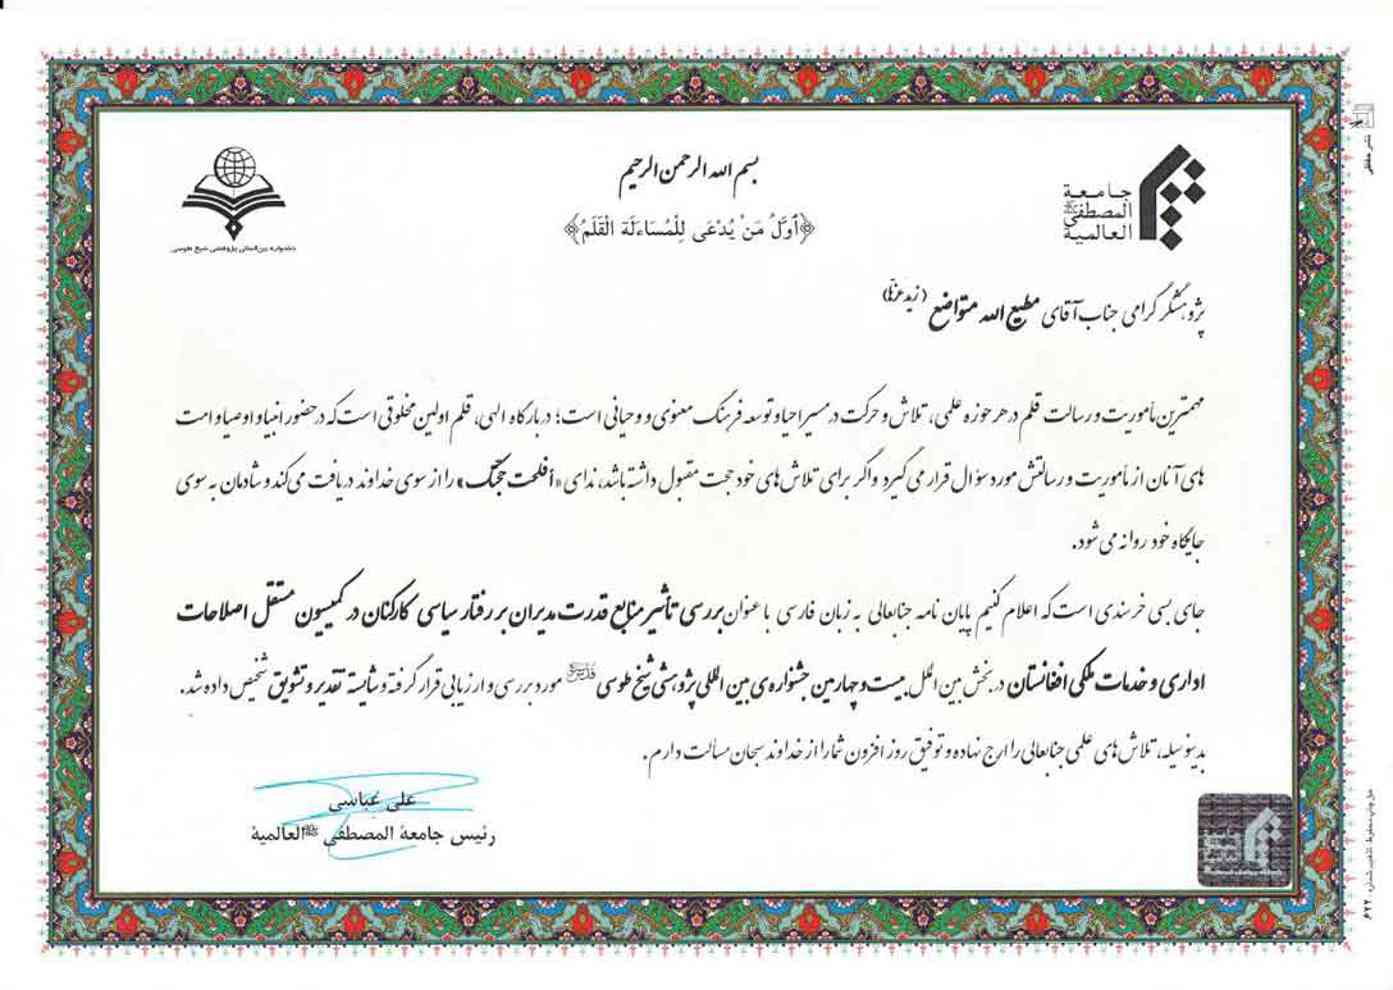 بسم الله الرحمن الرحیم
﴿أَوَّلُ مَنْ یُدْعَی لِلْمُسَاءَلَة الْقَلَمُ﴾
جامعة
المصطفی ﷺ
العالمیة
جشنواره بین‌المللی پژوهشی شیخ طوسی
پژوهشگر گرامی جناب آقای مطیع الله متواضع (زید عزها)
مهمترین مأموریت و رسالت قلم در هر حوزه علمی، تلاش و حرکت در مسیر احیا و توسعه فرهنگ معنوی و وحیانی است؛ در بارگاه الهی، قلم اولین مخلوقی است که در حضور انبیا و اوصیا و امت
های آنان از مأموریت و رسالتش مورد سؤال قرار می گیرد و اگر برای تلاش های خود حجت مقبول داشته باشد، ندای «أفلحت حجتک» را از سوی خداوند دریافت می کند و شادمان به سوی
جایگاه خود روانه می شود.
جای بسی خرسندی است که اعلام کنیم پایان نامه جنابعالی به زبان فارسی با عنوان بررسی تأثیر منابع قدرت مدیران بر رفتار سیاسی کارکنان در کمیسیون مستقل اصلاحات
اداری و خدمات ملکی افغانستان در بخش بین الملل بیست و چهارمین جشنواره‌ی بین المللی پژوهشی شیخ طوسی مورد بررسی و ارزیابی قرار گرفته و شایسته تقدیر و تشویق تشخیص داده شد.
بدینوسیله، تلاش های علمی جنابعالی را ارج نهاده و توفیق روز افزون شما را از خداوند سبحان مسألت دارم.
علی عباسی
رئیس جامعة المصطفی ﷺ العالمیة